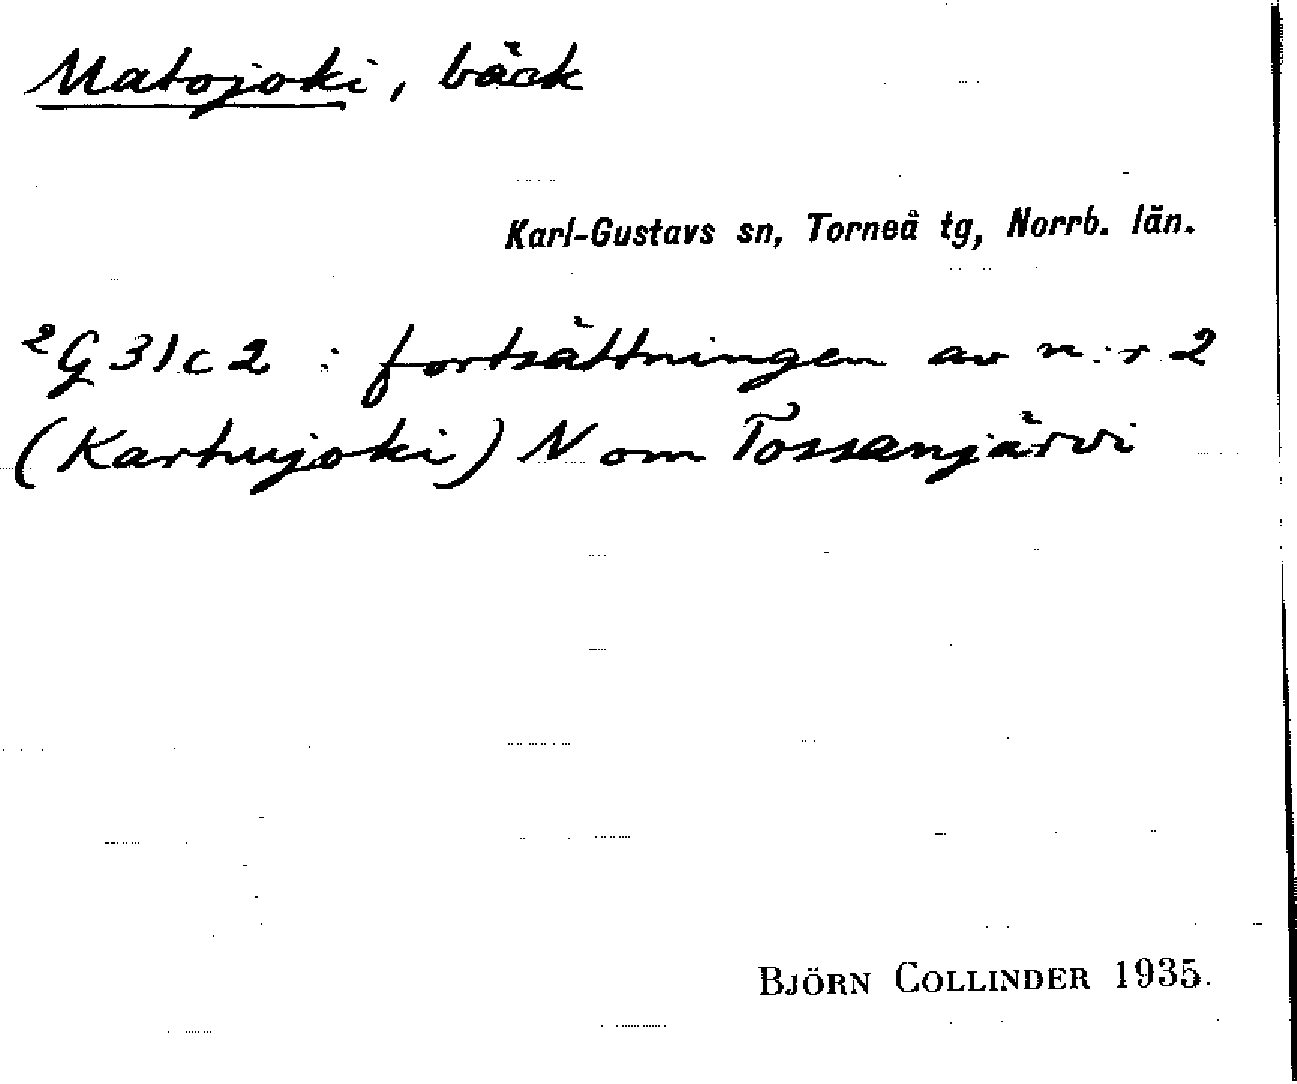 Matojoki, bäck
Karl-Gustavs sn, Torneå tg, Norrb. län.
²G 31 c 2 : fortsättningen av n:r 2
(Karhujoki) N om Tossanjärvi
BJÖRN COLLINDER 1935.